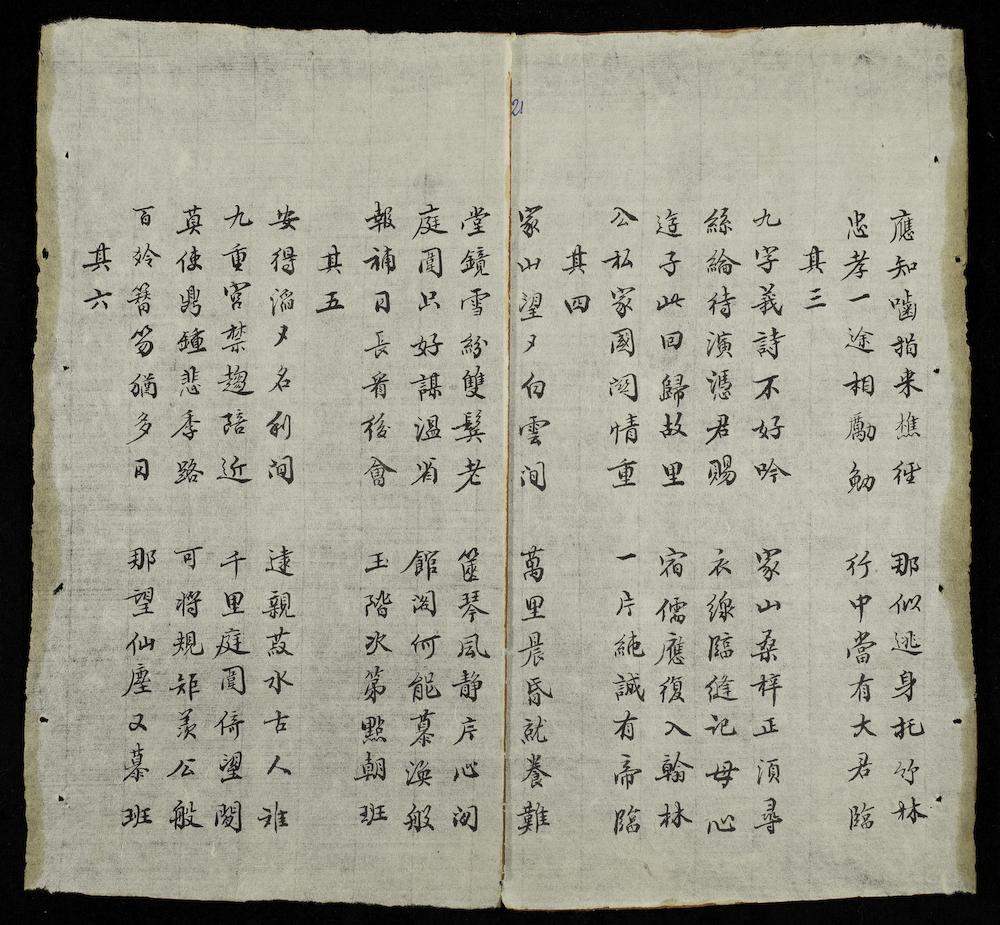 應知嚙指来樵徑 那似逃身托竹林
忠孝一途相勵勉 行中當有大君臨
其三
九字莪詩不好吟 家山桑梓正須尋
絲綸待演憑君賜 衣線臨縫記母心
遊子此回歸故里 宿儒應復入翰林
公私家國関情重 一片純誠有帝臨
其四
家山望々白雲间 萬里晨昏就養難
堂鏡雪紛雙鬓老 箧琴風静片心闲
庭闱只好謀温凊 館阁何能慕渙般
報補日長看後會 玉階次第點朝班
其五
安得滔々名利间 逮親菽水古人誰
九重宫禁趨陪近 千里庭闱倚望閒
莫使鼎鍾悲季路 可将規矩羡公般
百龄簪笏猶多日 那望仙塵又慕班
其六
21